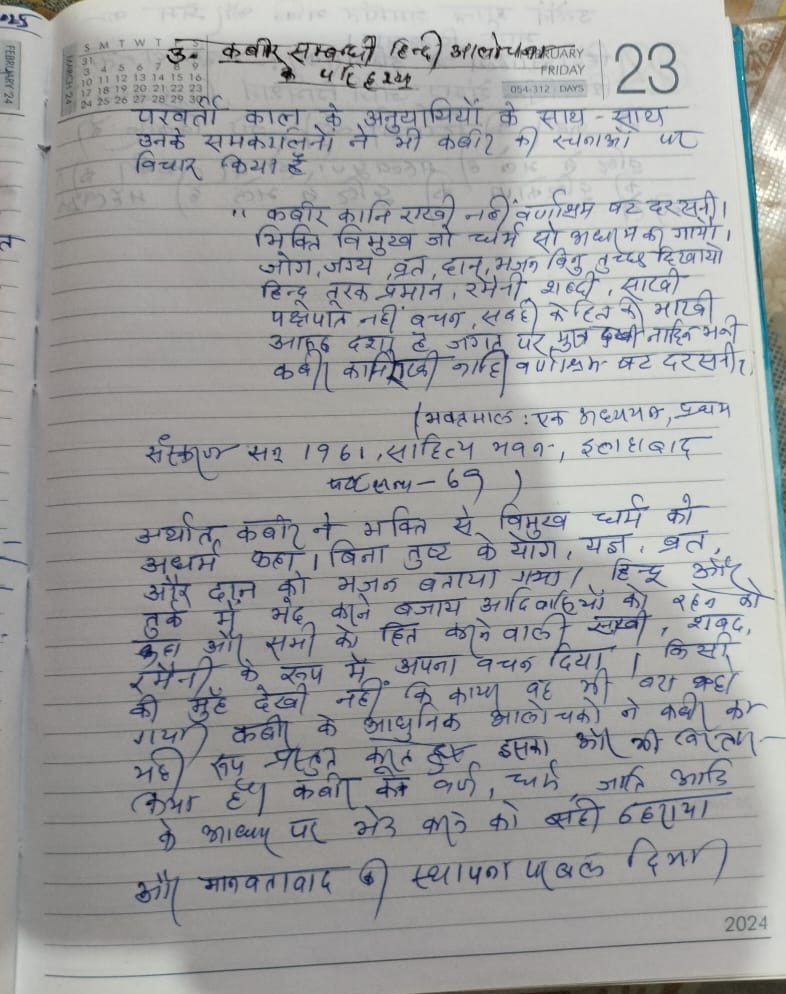 2025
FEBRUARY 24
MARCH 24
S M T W T F S
31
3 4 5 6 7 8 9
10 11 12 13 14 15 16
17 18 19 20 21 22 23
24 25 26 27 28 29 30
FRIDAY
054-312 DAYS
23
3. कबीर सम्बन्धी हिन्दी आलोचना
के परिदृश्य
परवर्ती काल के अनुयायियों के साथ - साथ
उनके समकालिनों ने भी कबीर की रचनाओं पर
विचार किया है
" कबीर कानि राखी नहीं वर्णाश्रम षट दरसनी।
भक्ति विमुख जो धर्म सो अधरम करि गायो।
जोग, जग्य, व्रत, दान, भजन बिनु तुच्छ दिखायो
हिन्दू तुरक प्रमान, रमैनी, शब्दी, साखी
पक्षेपात नहीं वचन, सबही के हित की भाखी
आरूढ दशा है जगत पर मुख देखी नाहिन भनी
कबीर कानि राखी नाहिं वर्णाश्रम षट दरसनी।
(भक्तमाल : एक अध्ययन, प्रथम
संस्करण सन् 1961, साहित्य भवन, इलाहाबाद
- 69 )
अर्थात् कबीर ने भक्ति से विमुख धर्म को
अधर्म कहा। बिना तुष्ट के योग, यज्ञ, व्रत,
और दान को भजन बताया गया। हिन्दू और
तुर्क में भेद करने बजाय को रहने को
कहा और सभी के हित करने वाली साखी, शबद,
रमैनी के रूप में अपना वचन दिया। किसी
की मुँह देखी नहीं कि कारण वह भी
गया। कबीर के आधुनिक आलोचकों ने कबीर का
यही रूप प्रस्तुत करते हुए इसका और भी विस्तार
किया है। कबीर के वर्ण, धर्म, जाति आदि
के आधार पर भेद करने को सही ठहराया
और मानवतावाद की स्थापना पर बल दिया।
2024